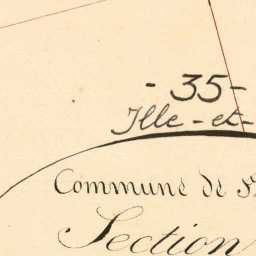 - 35 -
Ille - et -
Commune de
Section